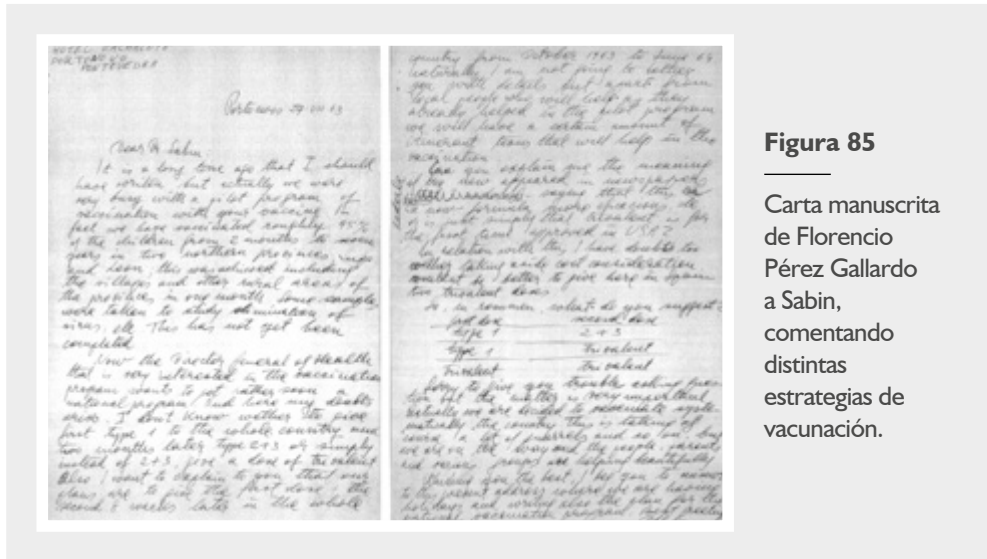 PORTONOVO
PONTEVEDRA
Dear Dr Sabin
It is a long time ago that I should
have written but actually we were
very busy with a pilot program of
vaccination with your vaccine. In
we have vaccinated roughly 95%
of the children from 2 months to seven
years in two northern provinces
and Leon, this was achieved including
the villages and other rural areas of
the provinces, in one month. Some samples
were taken to study elimination of
virus, etc. This has not yet been
completed
Now the Director General of Health
that is very interested in the vaccination
program want to put rather soon a
national program and here my doubts
arise. I don't know wether to give
first type 1 to the whole country and
two months later type 2+3 or simply
instead of 2+3, give a dose of trivalent
Also I want to explain to you that our
plans are to give the first dose, the
second 8 weeks later in the whole
country from October 1963 to June 64
naturally I am not going to bother
you with details but apart from
local people who will help as they
already helped in the pilot program
we will have a certain amount of
itinerant teams that will help in the
vaccination
Can you explain me the meaning
of the new appeared in newspapers
saying that the
new formula more efficacious etc
is just simply that trivalent is for
the first time approved in USA?
In relation with this I have doubts too
wether taking aside cost consideration
wouldnt be better to give here in Spain
two trivalent doses
So, in summary, what do you suggest:
first dose second dose
type 1 2+3
type 1 trivalent
trivalent trivalent
Sorry to give you trouble asking
but the matter is very important
actually we are decided to vaccinate
the country this is taking of
course a lot of quarrels and so on, but
we are on the way and the people
and groups are helping beautifully
you the best, I beg you to
to this present address where we are having
holidays and working also the plan for the
national vaccination program
Figura 85
Carta manuscrita
de Florencio
Pérez Gallardo
a Sabin,
comentando
distintas
estrategias de
vacunación.